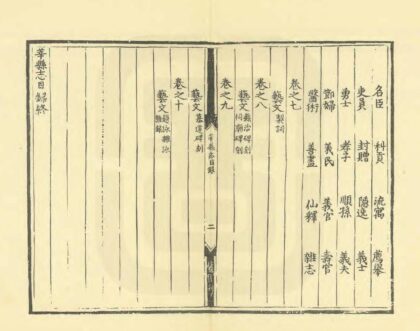 名臣 科貢 流寓 薦舉
吏員 封贈 隱逸 義士
勇士 孝子 順孫 義夫
節婦 義民 義官 壽官
醫術 善畫 仙釋 雜志
卷之七
藝文 製詞
卷之八
藝文 縣治碑刻 祠廟碑刻
卷之九
莘縣志目錄 二
藝文 墓道碑刻
卷之十
藝文
莘縣志目錄終